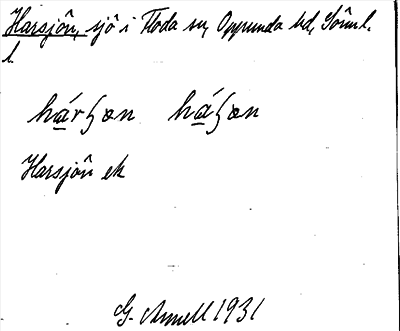 Harsjön, sjö i Floda sn, Oppunda hd, Sörml.
l.
hárʃon háʃon
Harsjön ek
G. Annell 1931